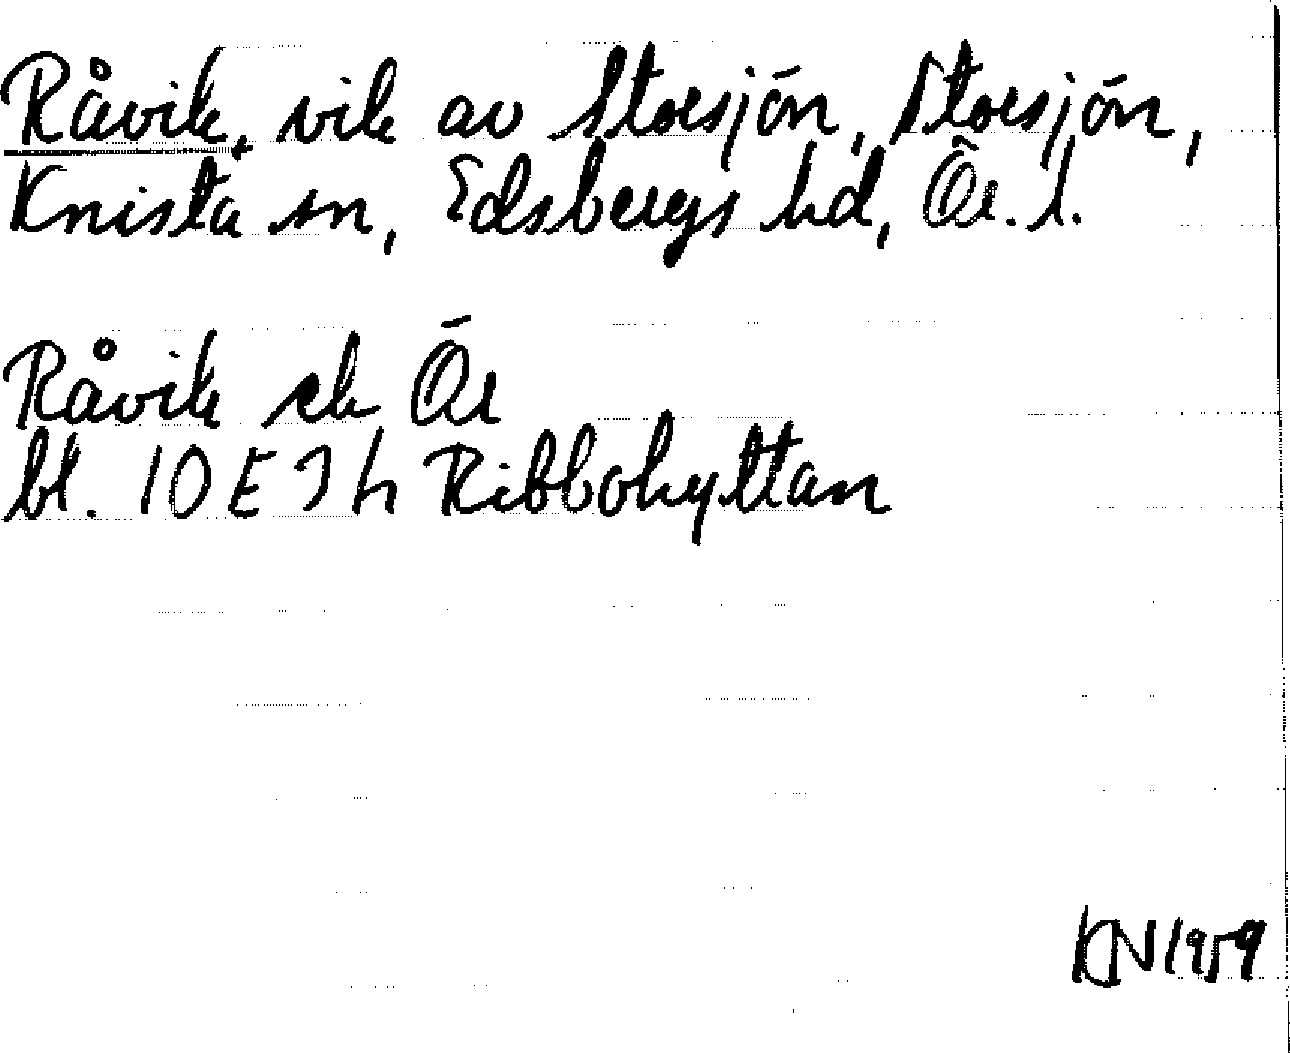 Råvik, vik av Storsjön, Storsjön,
Knista sn, Edsbergs hd, Ör. l.
Råvik ek Ör
bl. 10 E 7 h Ribbohyttan
KN 1959